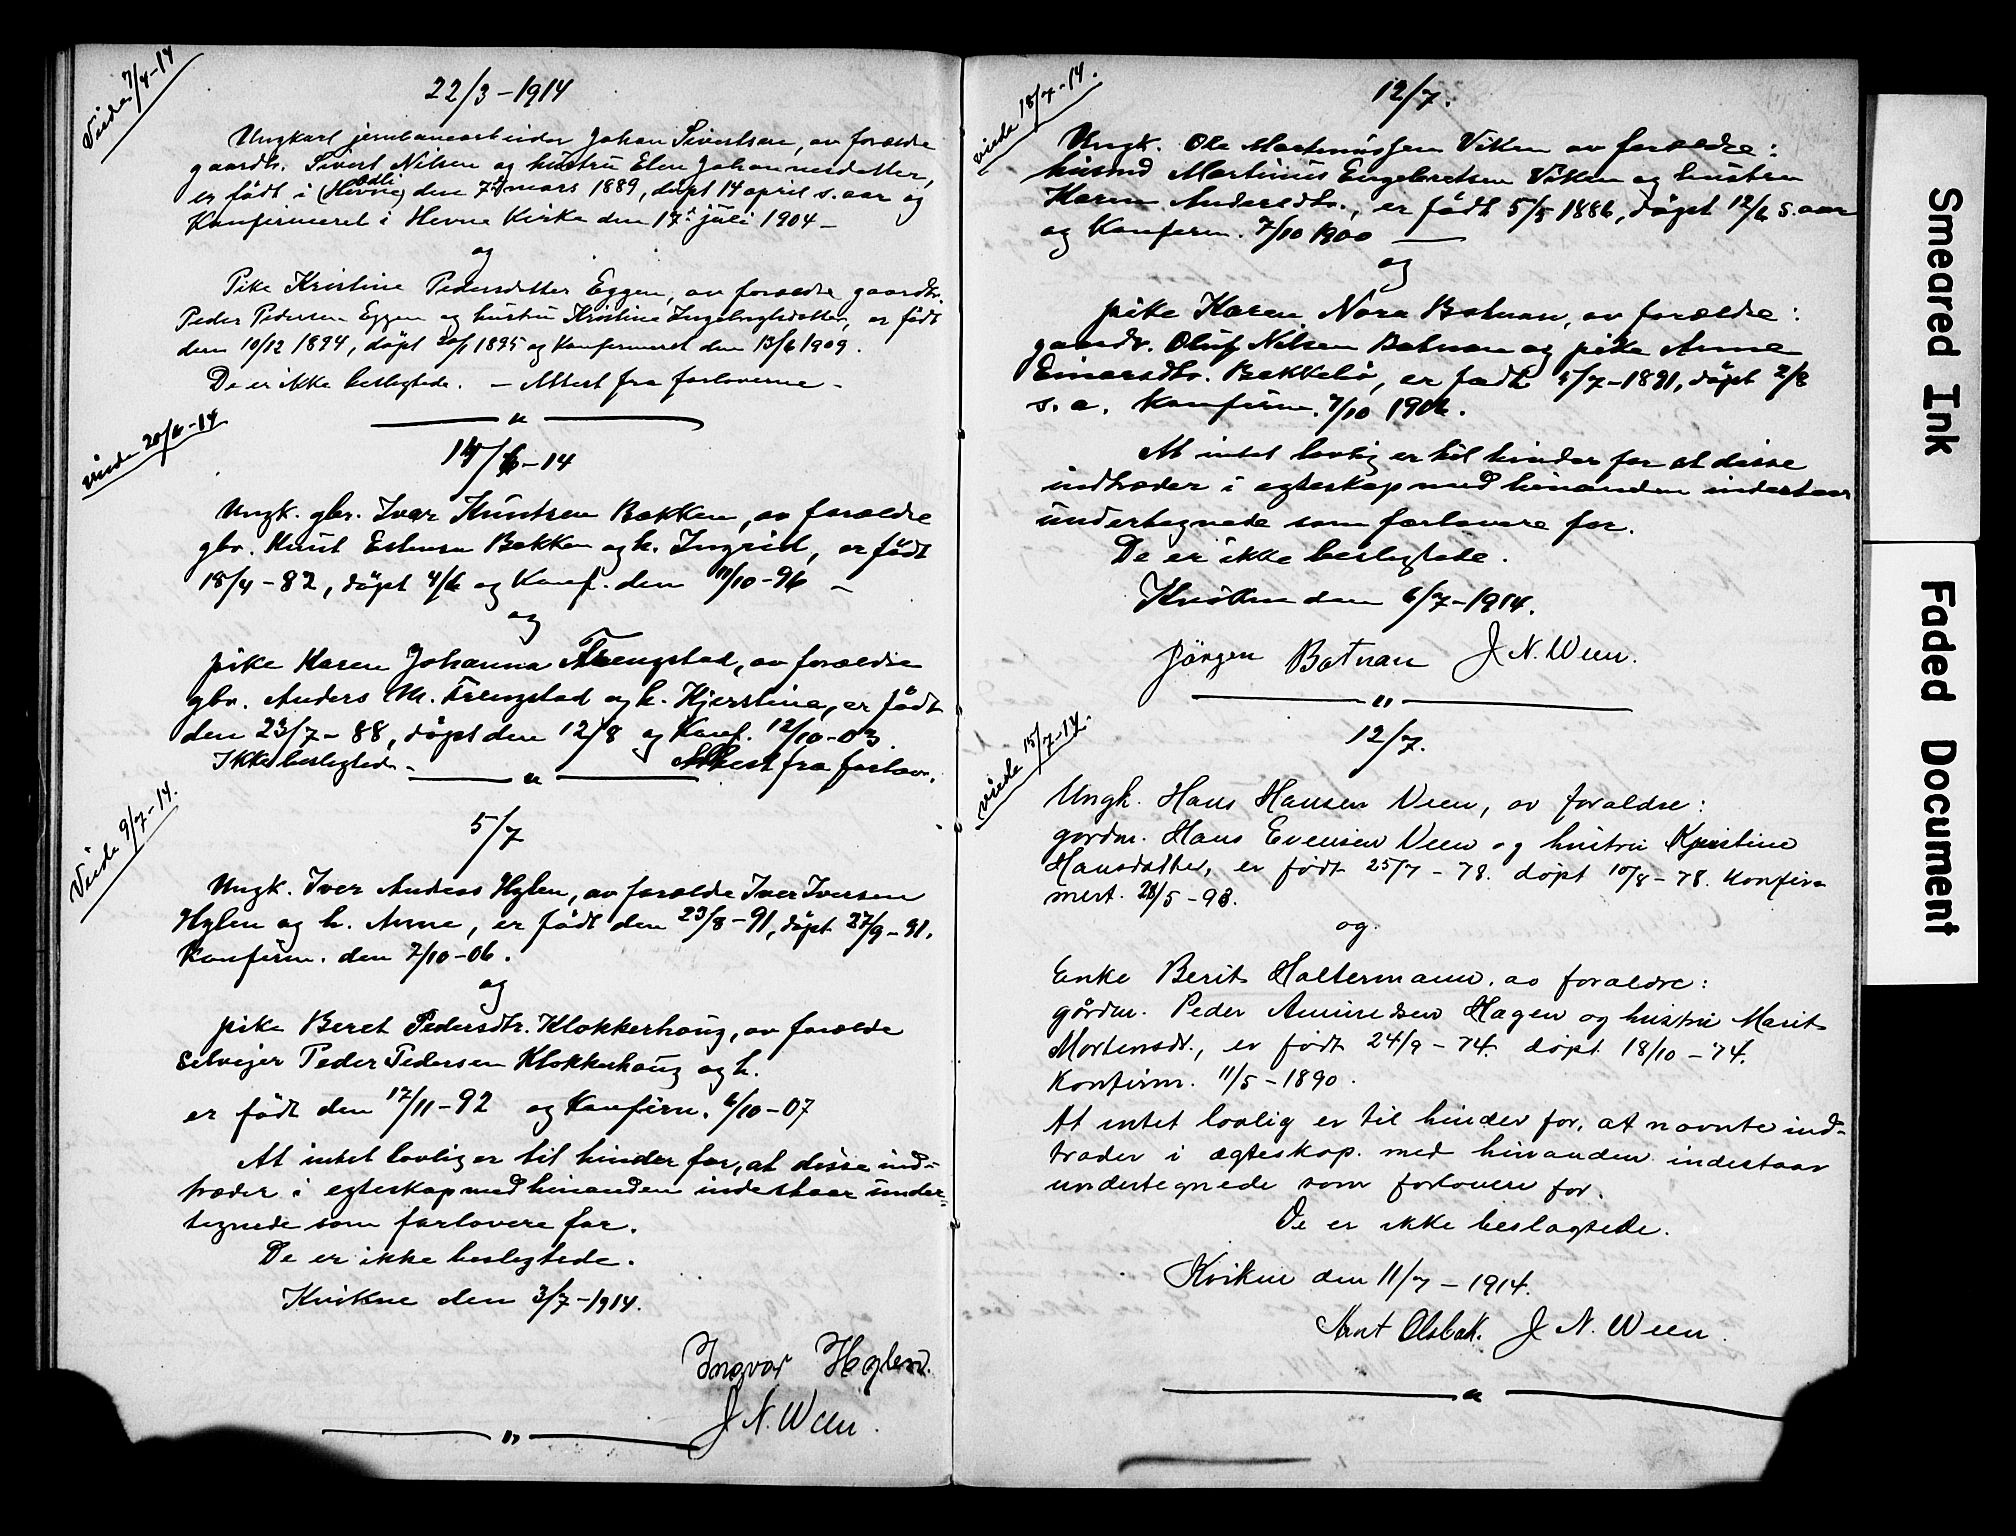 Viede 7/4-14
22/3-1914
Ungkarl jernbanearbeider Johan Sivertsen, av forældre
gaardbr. Sivert Nilsen og hustru Elen Johannesdatter,
er født i (Hevne) den 7de mars 1889, døpt 14 april s. aar og
Konfirmeret i Hevne Kirke den 17. juli 1904 –
og
Pike Kristine Pedersdatter Eggen, av forældre gaardbr.
Peder Pedersen Eggen og hustru Kristine Ingebrigtsdatter, er født
den 10/12 1894, døpt 20/1 1895 og Konfirmeret den 13/6 1909.
De er ikke beslegtede. – Attest fra forloverne –
viede 20/6-14
14/6-14
Ungk. gbr. Ivar Knutsen Bakken, av forældre
gbr. Knut Estensen Bakken og h. Ingrid, er født
18/4-82, døpt 4/6 og Konf. den 11/10-96 –
og
pike Karen Johanna Frengstad, av forældre
gbr. Anders M. Frengstad og h. Kjerstine, er født
den 23/7-88, døpt den 12/8 og Konf. 12/10-03.
Ikke beslegtede – Attest fra forlov.
Viede 9/7-14.
5/7
Ungk. Iver Andeas Hylen, av forælde Iver Iversen
Hylen og h. Anne, er født den 23/8-91, døpt 27/9-91.
Konfirm. den 7/10-06.
og
pike Beret Pedersdtr. Klokkerhaug, av forælde
Selvejer Peder Pedersen Klokkerhaug og h.
er født den 17/11-92 og Konfirm. 6/10-07
At intet lovlig er til hinder for, at disse ind-
træder i egteskap med hinanden indestaar under-
tegnede som forlovere for.
De er ikke beslegtede.
Kvikne den 3/7-1914.
Ingvar Hylen.
J. N. Ween.
viede 18/7-14.
12/7.
Ungk. Ole Martinussen Viken av forældre:
husmd Martinus Engebretsen Viken og hustru
Karen Andersdtr., er født 5/5 1886, døpt 12/6 s. aar
og Konfirm. 7/10 1900
og
pike Karen Nora Batnan, av forældre:
gaardr. Oluf Nilsen Batnan og pike Anne
Einarsdtr. Bakkebø, er født 5/7-1891, døpt 2/8
s. a. Konfirm. 7/10 1906.
At intet lovlig er til hinder for at disse
indtræder i egteskap med hinanden indestaar
undertegnede som forlovere for.
De er ikke beslegtede.
Kvikne den 6/7-1914.
Jørgen Batnan J. N. Ween.
viede 15/7-14.
12/7.
Ungk. Hans Hansen Veen, av foraldre:
gårdm. Hans Evensen Veen og hustru Kjristine
Hansdatter, er født 25/7-78. døpt 10/8-78. Konfir-
mert. 28/5-93.
og
Enke Berit Haltermann. av foraldre:
gårdm. Peder Amundsen Hagen og hustru Marit
Mortensdt., er født 24/9-74. døpt 18/10-74.
Konfirm. 11/5-1890.
At intet lovlig er til hinder for, at navnte ind-
trader i ægteskap. med hinanden indestaar
undertegnede som forlovere for.
De er ikke beslagtede.
Kvikne den 11/7-1914.
Arnt Olsbak. J. N. Ween.
Smeared Ink
Faded Document